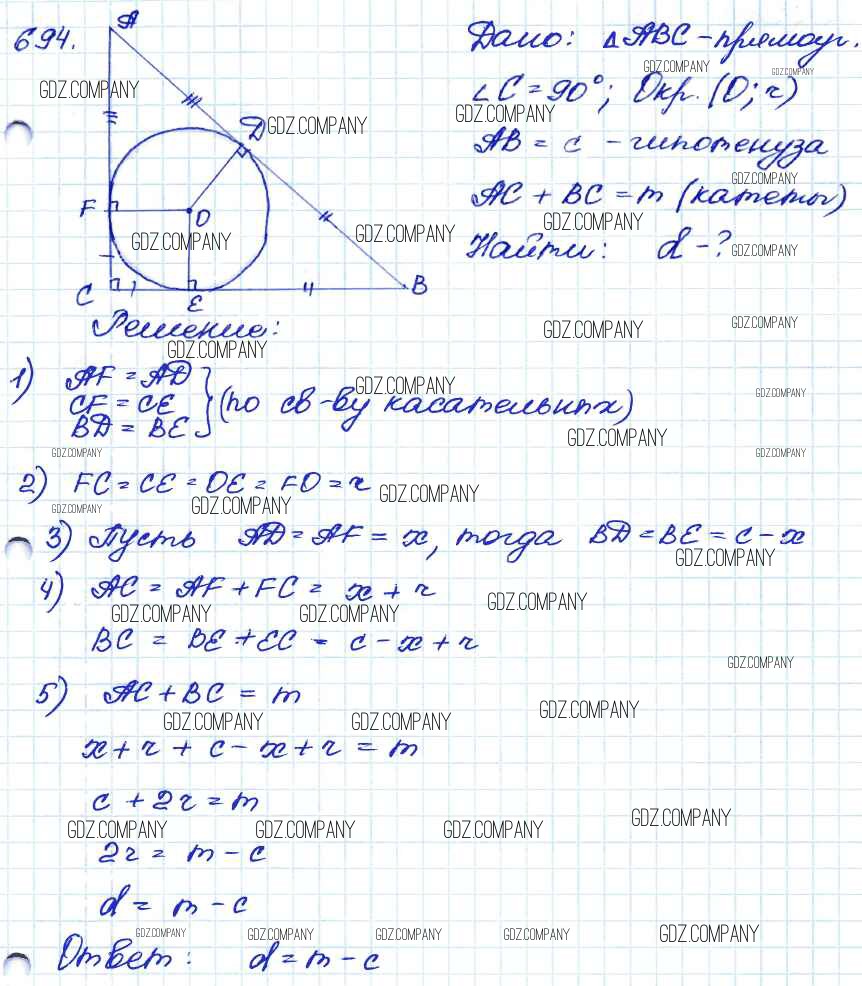 694.
Дано: △ABC - прямоуг.
∠C = 90°; Окр. (O; r)
AB = c - гипотенуза
AC + BC = m (катеты)
Найти: d - ?
A
D
F
O
C
E
B
Решение:
1) AF = AD
CF = CE
BD = BE
} (по св-ву касательных)
2) FC = CE = OE = FO = r
3) Пусть AD = AF = x, тогда BD = BE = c - x
4) AC = AF + FC = x + r
BC = BE + EC = c - x + r
5) AC + BC = m
x + r + c - x + r = m
c + 2r = m
2r = m - c
d = m - c
Ответ: d = m - c
GDZ.COMPANY